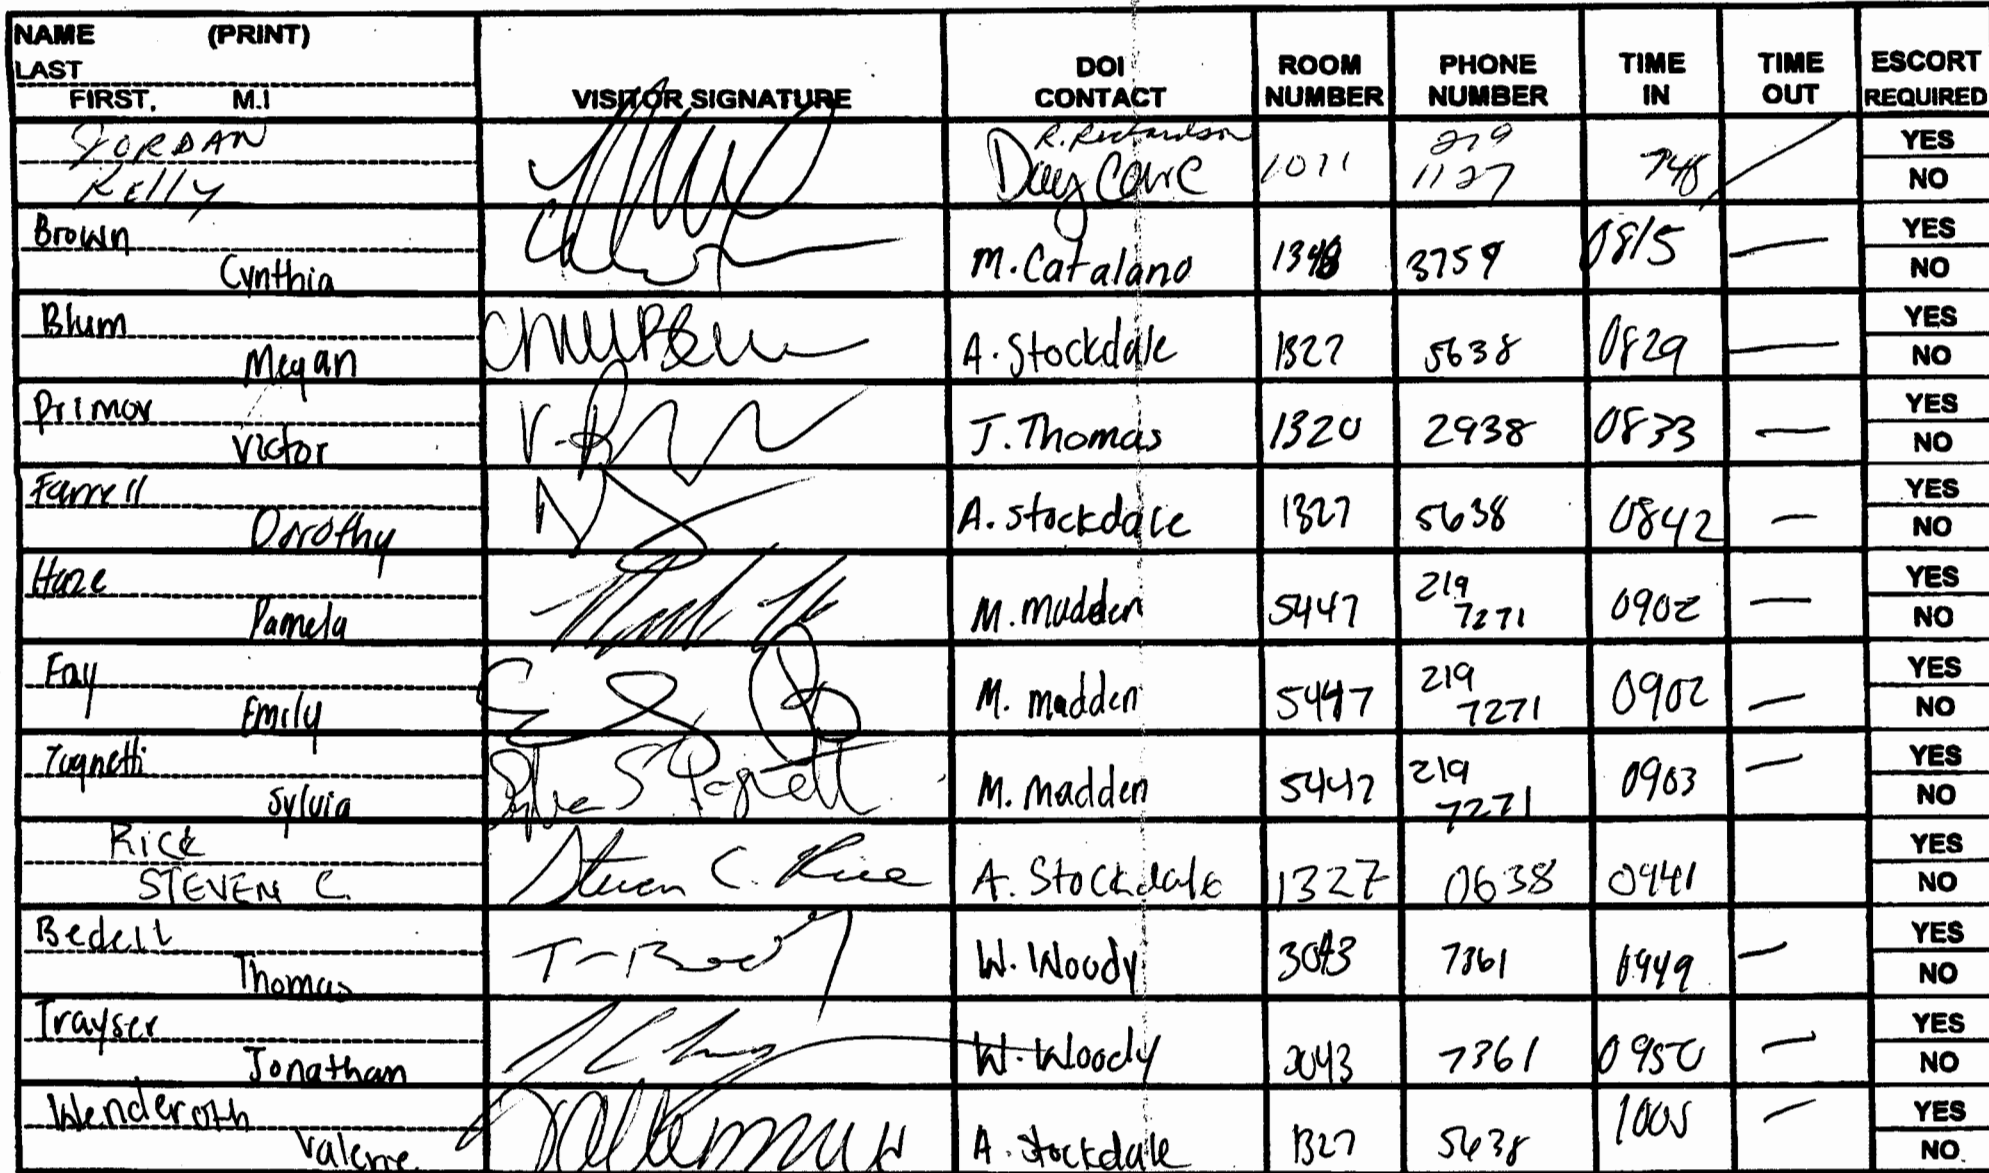 NAME (PRINT)
LAST
FIRST, M.I
VISITOR SIGNATURE
DOI CONTACT
ROOM NUMBER
PHONE NUMBER
TIME IN
TIME OUT
ESCORT REQUIRED
JORDAN
Kelly
R. Richardson
Day Care
1011
219
1127
748
YES
NO
Brown
Cynthia
M. Catalano
3759
0815
—
YES
NO
Blum
Megan
A. Stockdale
1327
5638
0829
—
YES
NO
Primov
Victor
J. Thomas
1320
2938
0833
—
YES
NO
Farrell
Dorothy
A. Stockdale
1327
5638
0842
—
YES
NO
Haze
Pamela
M. Madden
5447
219
7271
0902
—
YES
NO
Fay
Emily
M. Madden
5447
219
7271
0902
—
YES
NO
Sylvia
M. Madden
5447
219
7271
0903
—
YES
NO
Rice
STEVEN C.
Steven C. Rice
A. Stockdale
1327
0638
0941
YES
NO
Bedell
Thomas
W. Woody
3043
7361
0949
—
YES
NO
Trayser
Jonathan
W. Woody
7361
0950
—
YES
NO
Wenderoth
Valerie
A. Stockdale
1327
5638
1005
—
YES
NO